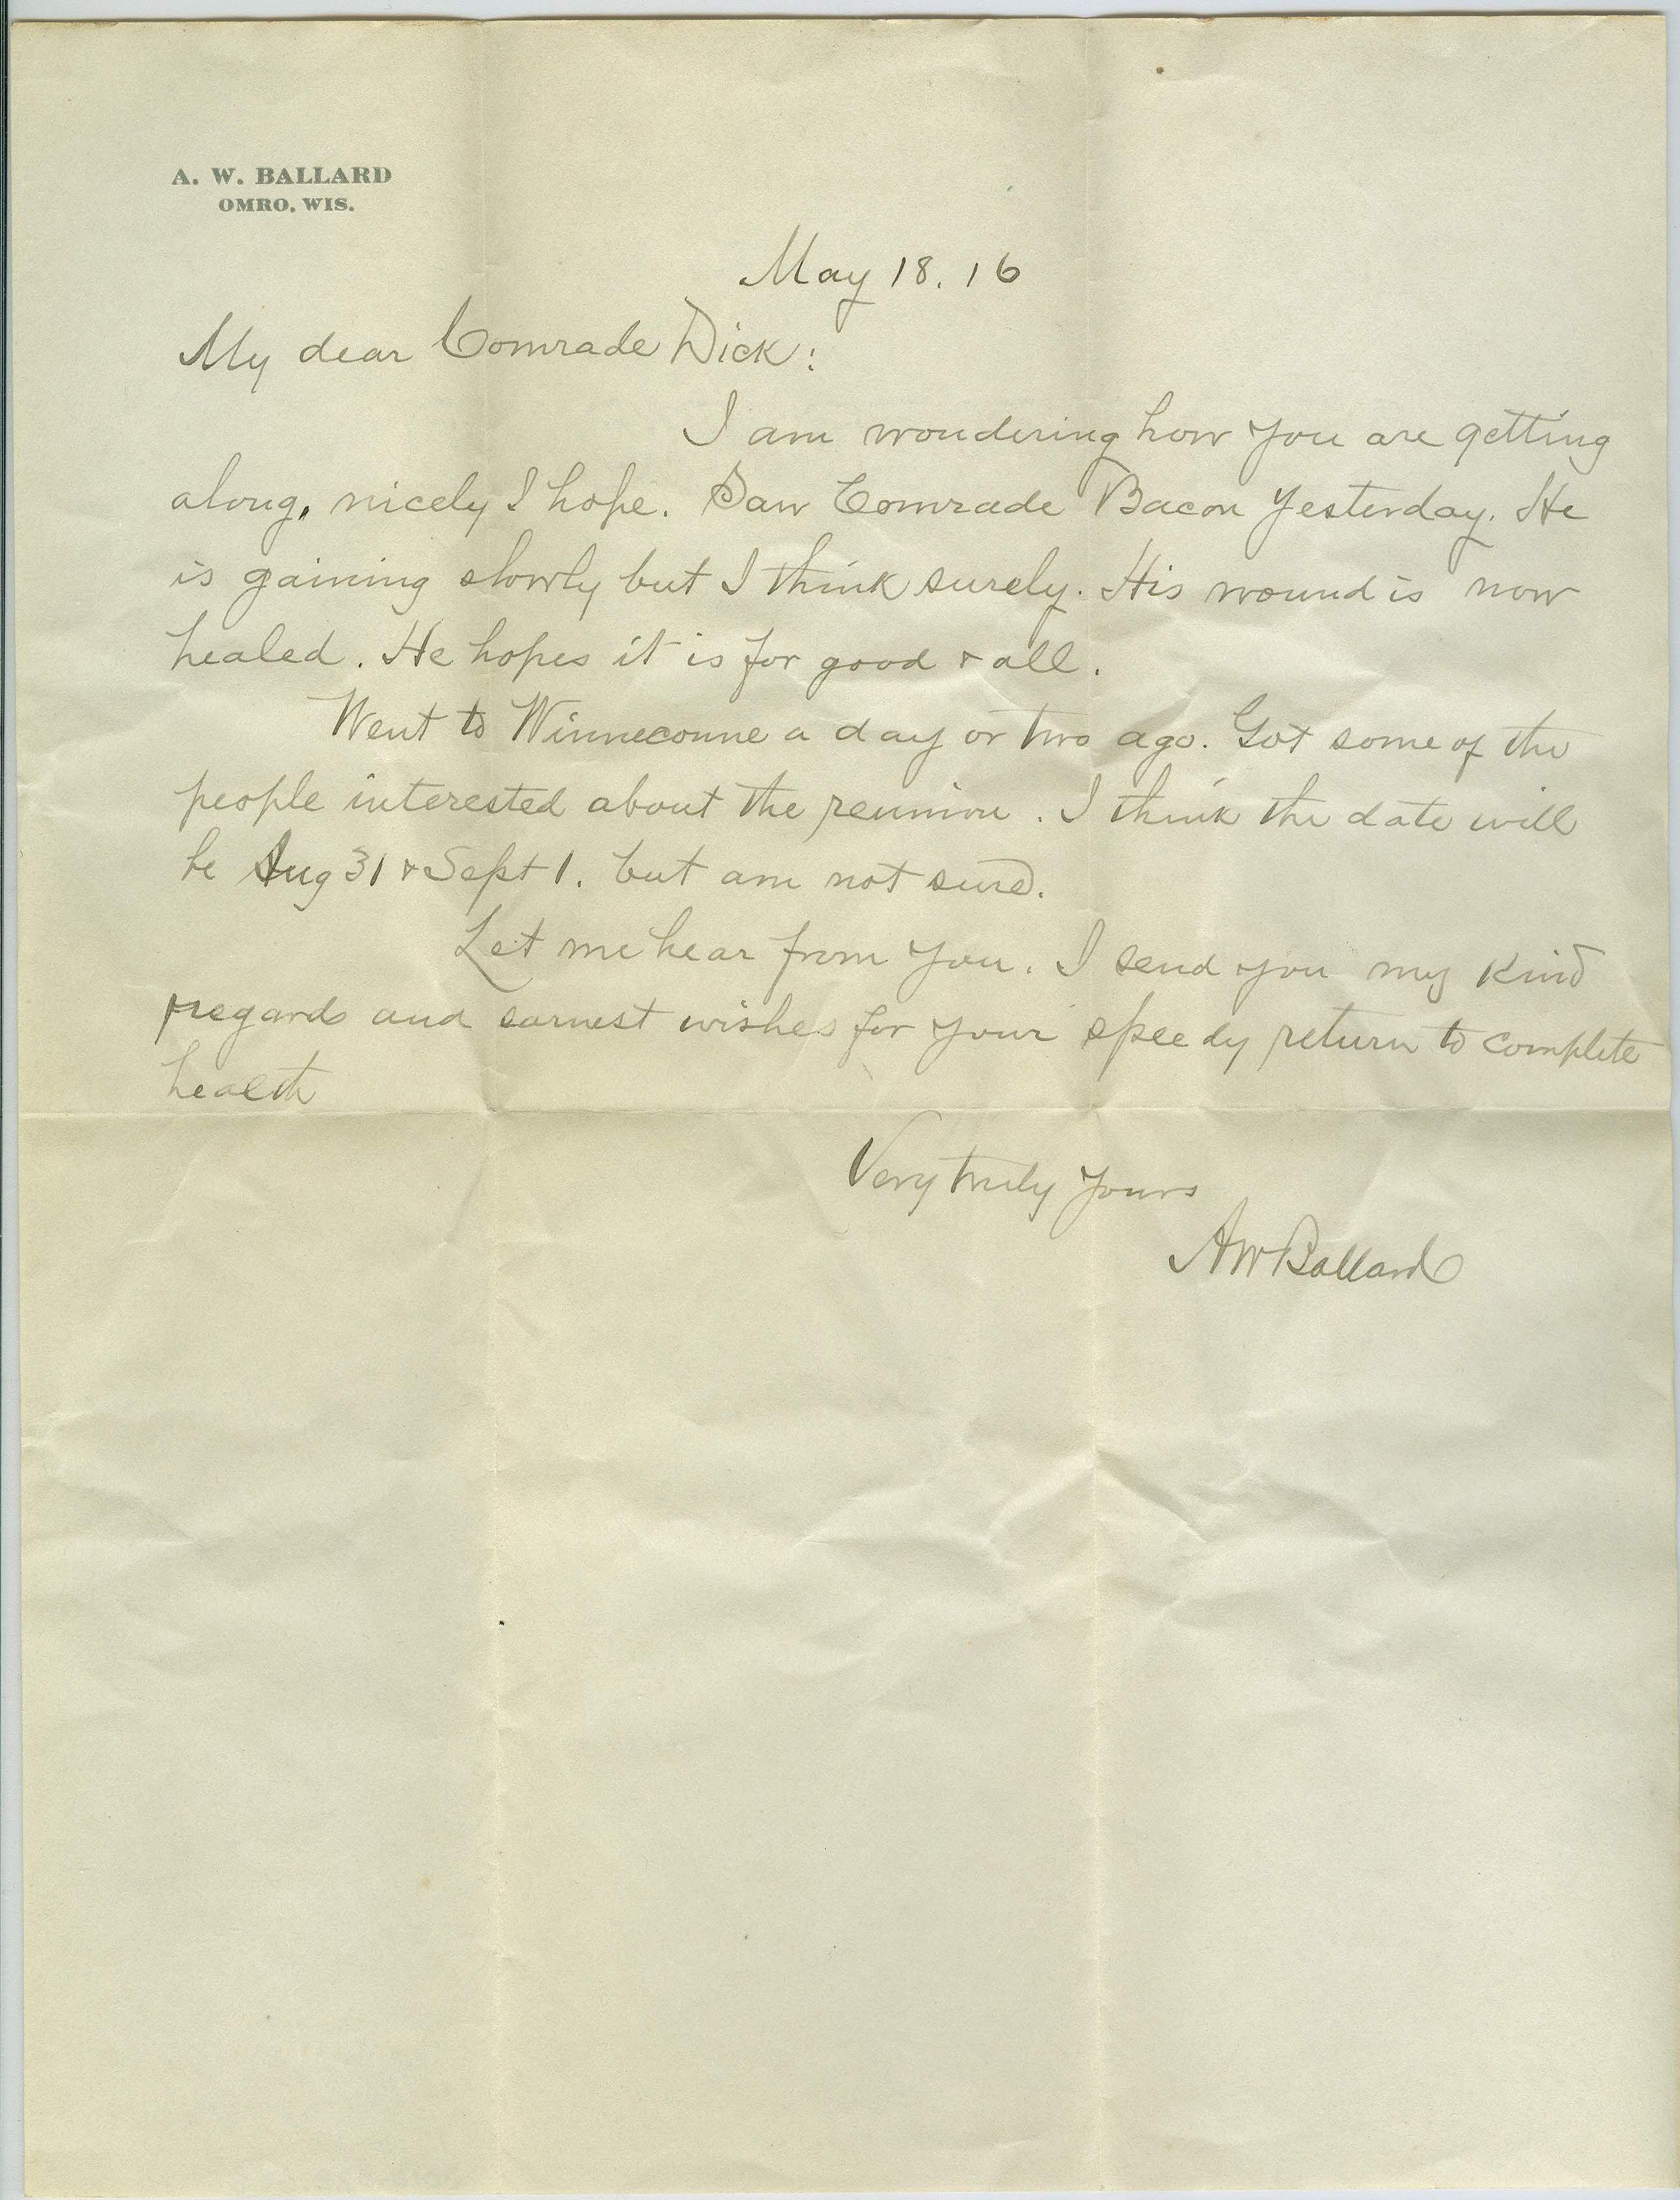 A. W. BALLARD
OMRO, WIS.
May 18. 16
My dear Comrade Dick:
I am wondering how you are getting
along, nicely I hope. Saw Comrade Bacon yesterday. He
is gaining slowly but I think surely. His wound is now
healed. He hopes it is for good & all.
Went to Winneconne a day or two ago. Got some of the
people interested about the reunion. I think the date will
be Aug 31 & Sept 1. but am not sure.
Let me hear from you. I send you my kind
regards and earnest wishes for your speedy return to complete
health
Very truly yours
AWBallard